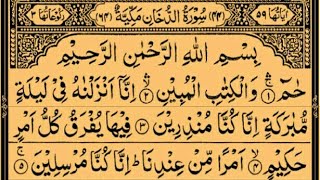 اٰيَاتُهَا ٥٩ (٤٤) سُوْرَةُ الدُّخَانِ مَكِّيَّةٌ (٦٤) رُكُوْعَاتُهَا ٣
بِسْمِ اللّٰهِ الرَّحْمٰنِ الرَّحِيْمِ
حٰمٓ ۚ‏﴿١﴾ وَالْكِتٰبِ الْمُبِيْنِ ۙ‏﴿٢﴾ اِنَّاۤ اَنْزَلْنٰهُ فِيْ لَيْلَةٍ
مُّبٰرَكَةٍ اِنَّا كُنَّا مُنْذِرِيْنَ ﴿٣﴾ فِيْهَا يُفْرَقُ كُلُّ اَمْرٍ
حَكِيْمٍ ۙ‏﴿٤﴾ اَمْرًا مِّنْ عِنْدِنَا ؕ اِنَّا كُنَّا مُرْسِلِيْنَ ۚ‏﴿٥﴾